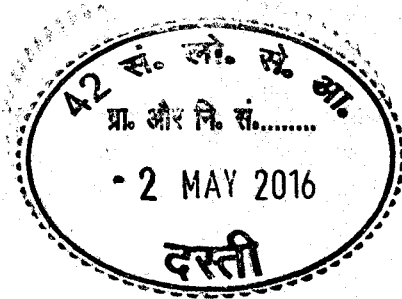 42 सं. लो. से. आ.
प्रा. और नि. सं.........
- 2 MAY 2016
दस्ती